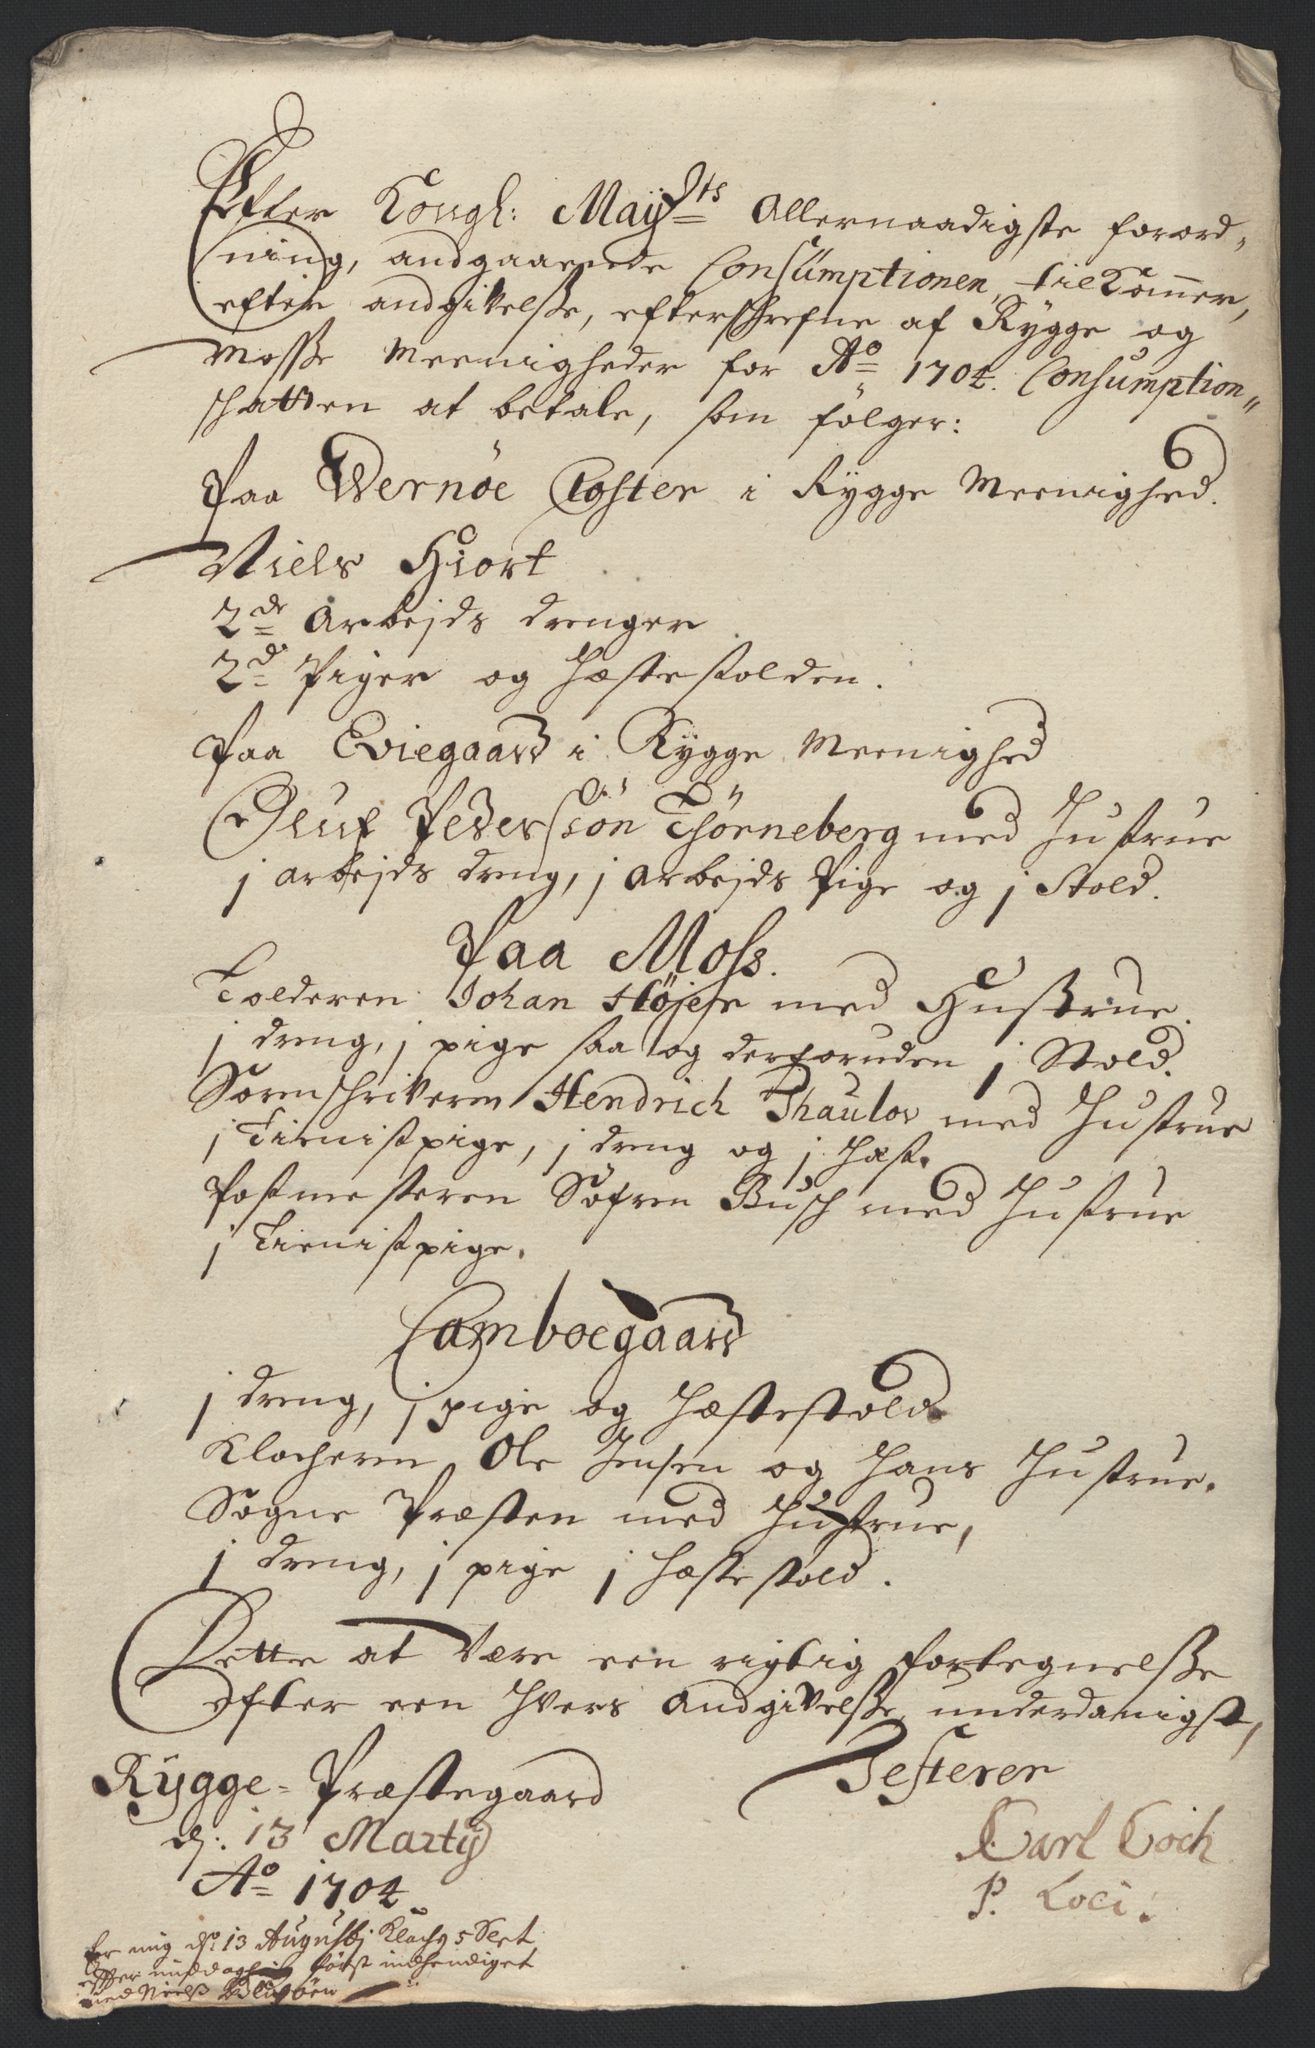 Efter Kongl: Maÿts Allernaadigste forord„
ning, andgaaende Consumptionen, tilkommer,
efter andgivelße, efterschrefne af Rygge og
Mosse Meenigheder for Ao 1704. Consumption„
schatten at betale, som følger:
Paa Wernöe Closter i Rygge Meenighed.
Niels Hiort
2de Arbejds drenger
2de Piger og Hæstestolden.
Paa Eviegaard i Rygge Meenighed
Oluf Pederssön Tjörneberg med Hustrue
j arbejds dreng, j arbejds Pige og j Stold.
Paa Moss.
Tolderen Johan Höjer med Hustrue.
j dreng, j pige saa og derforuden j Stold.
Sorenschriveren Hendrich Thaulov med Hustrue
j Tienistpige, j dreng og j Hæst.
Postmesteren Söfren Busch med Hustrue
j Tienistpige.
Camboegaard
j dreng, j pige og Hæstestold
Klocheren Ole Jensen og Hans Hustrue.
Sogne Præsten med Hustrue,
j dreng, j pige j Hæstestold.
Dette at være een rigtig fortegnelße
efter een hvers Andgivelße underdanigst,
Rÿgge-Præstegaard
d: 13 Martÿ
Ao 1704
Testerer
Carl Coch
P. Loci.
Er mig d: 13 Augustj Klochen 5 Slet
effter middagen først indhendiget
med Nielß